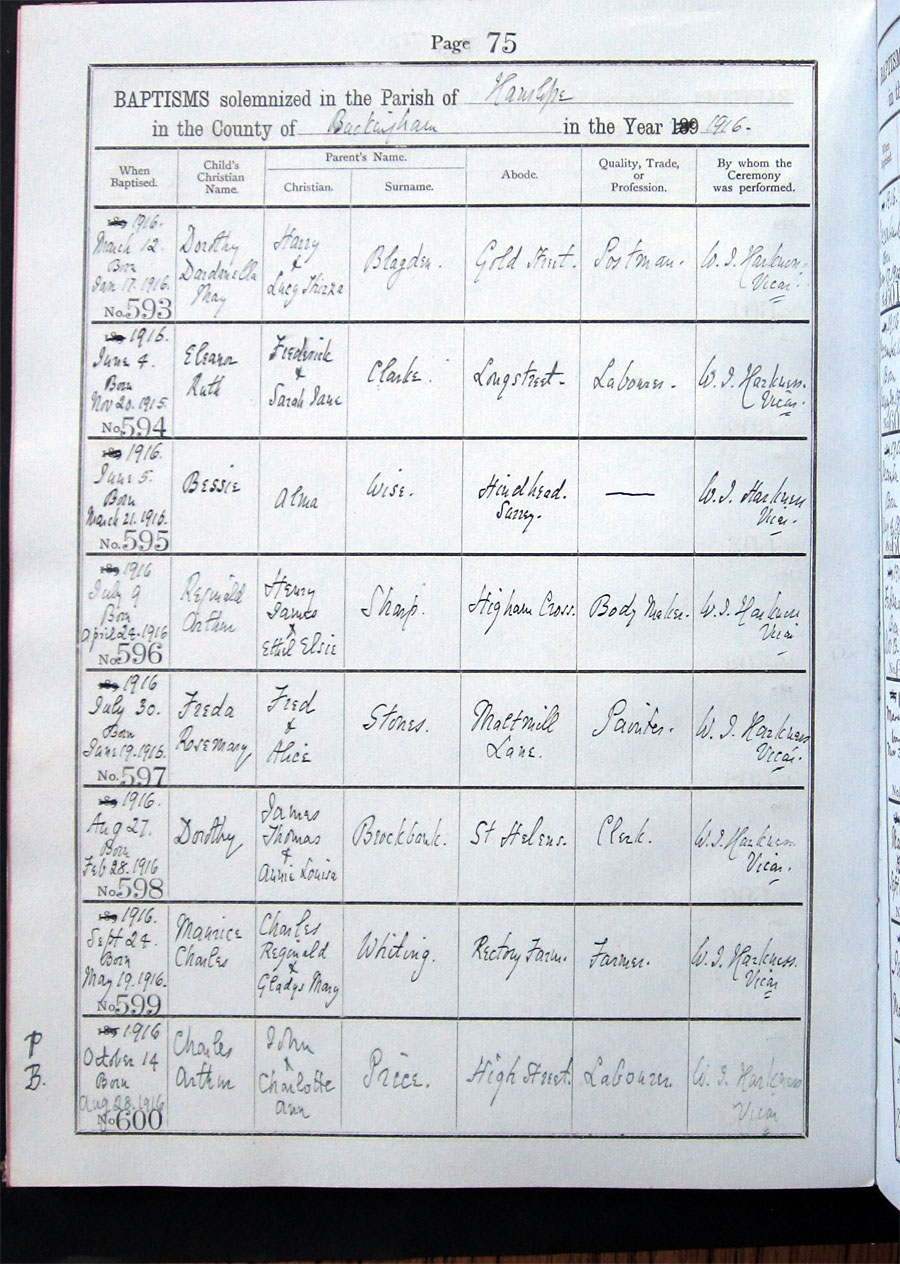 Page 75
BAPTISMS solemnized in the Parish of Hanslope
in the County of Buckingham in the Year 189 1916.
When Baptised. Child's Christian Name. Parent's Name. Christian. Surname. Abode. Quality, Trade, or Profession. By whom the Ceremony was performed.
189 1916.
March 12.
Born
Jan 17. 1916.
No. 593
Dorothy
Dardenella
May
Harry
&
Lucy Thirza
Blagden.
Gold Street.
Postman.
W. J. Harkness.
Vicar.
189 1916.
June 4.
Born
Nov 20. 1915.
No. 594
Eleanor
Ruth
Frederick
&
Sarah Jane
Clarke.
Longstreet.
Labourer.
W. J. Harkness.
Vicar.
189 1916.
June 5.
Born
March 21. 1916.
No. 595
Bessie
Alma
Wise.
Hindhead.
Surrey.
—
W. J. Harkness
Vicar.
189 1916
July 9
Born
April 24. 1916
No. 596
Reginald
Arthur
Henry
James
&
Ethel Elsie
Sharp.
Higham Cross.
Body Maker.
W. J. Harkness
Vicar
189 1916
July 30.
Born
June 19. 1916.
No. 597
Freda
Rosemary
Fred
&
Alice
Stones.
Maltmill
Lane.
Painter.
W. J. Harkness
Vicar.
189 1916.
Aug 27.
Born
Feb 28. 1916
No. 598
Dorothy
James
Thomas
&
Annie Louisa
Brockbank.
St Helens.
Clerk.
W. J. Harkness
Vicar.
189 1916.
Sept 24.
Born
May 19. 1916.
No. 599
Maurice
Charles
Charles
Reginald
&
Gladys Mary
Whiting.
Rectory Farm.
Farmer.
W. J. Harkness.
Vicar
P
B.
189 1916
October 14
Born
Aug 28. 1916
No 600
Charles
Arthur
John
&
Charlotte
Ann
Price.
High Street.
Labourer.
W. J. Harkness
Vicar